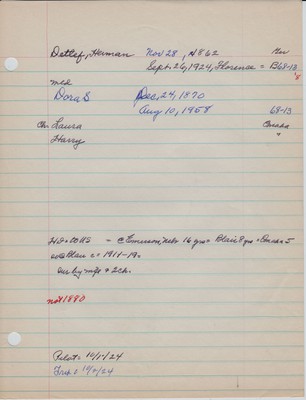 Detlef, Herman Nov 28, 1862 Nov
Sept. 26, 1924, Florence = B68-13
8
md
Dora S Dec, 24, 1870
Aug 10, 1958 68-13
Ch: Laura Omaha
Harry
Emerson, Nebr 16 yrs = Blair 8 yrs = Omaha 5
= 1911-19.
Sur by wife + 2 ch.
not 1890
Pilot: 10/1/24
Trib: 10/2/24